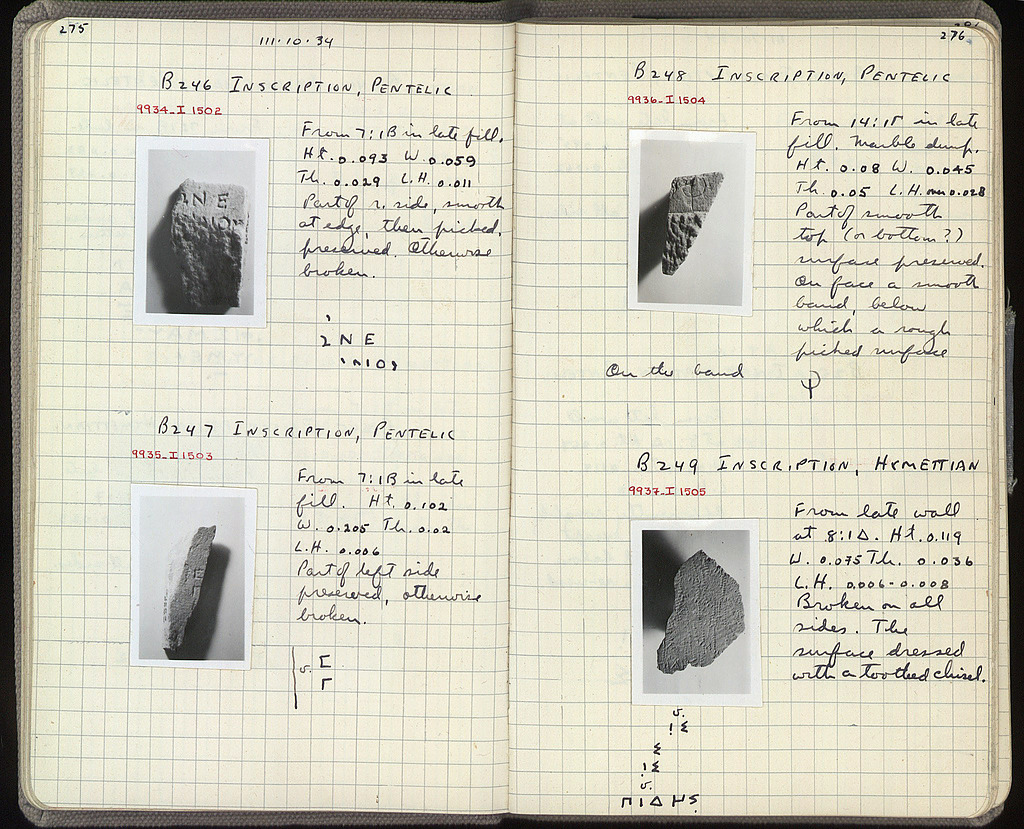 275
111·10·34
B246 INSCRIPTION, PENTELIC
9934-I 1502
From 7:1B in late fill.
Ht. 0.093 W. 0.059
Th. 0.029 L.H. 0.011
Part of r. side, smooth
at edge, then picked,
preserved. Otherwise
broken.
NE
B247 INSCRIPTION, PENTELIC
9935-I 1503
From 7:1B in late
fill. Ht. 0.102
W. 0.205 Th. 0.02
L.H. 0.006
Part of left side
preserved, otherwise
broken.
Ε
Γ
276
B248 INSCRIPTION, PENTELIC
9936-I 1504
From 14:1Γ in late
fill. Marble dump.
Ht. 0.08 W. 0.045
Th. 0.05 L.H. over 0.028
Part of smooth
top (or bottom?)
surface preserved.
On face a smooth
band, below
which a rough
picked surface
On the band
B249 INSCRIPTION, HYMETTIAN
9937-I 1505
From late wall
at 8:1Δ. Ht. 0.119
W. 0.075 Th. 0.036
L.H. 0.006-0.008
Broken on all
sides. The
surface dressed
with a toothed chisel.
ΠΙΔΗΣ